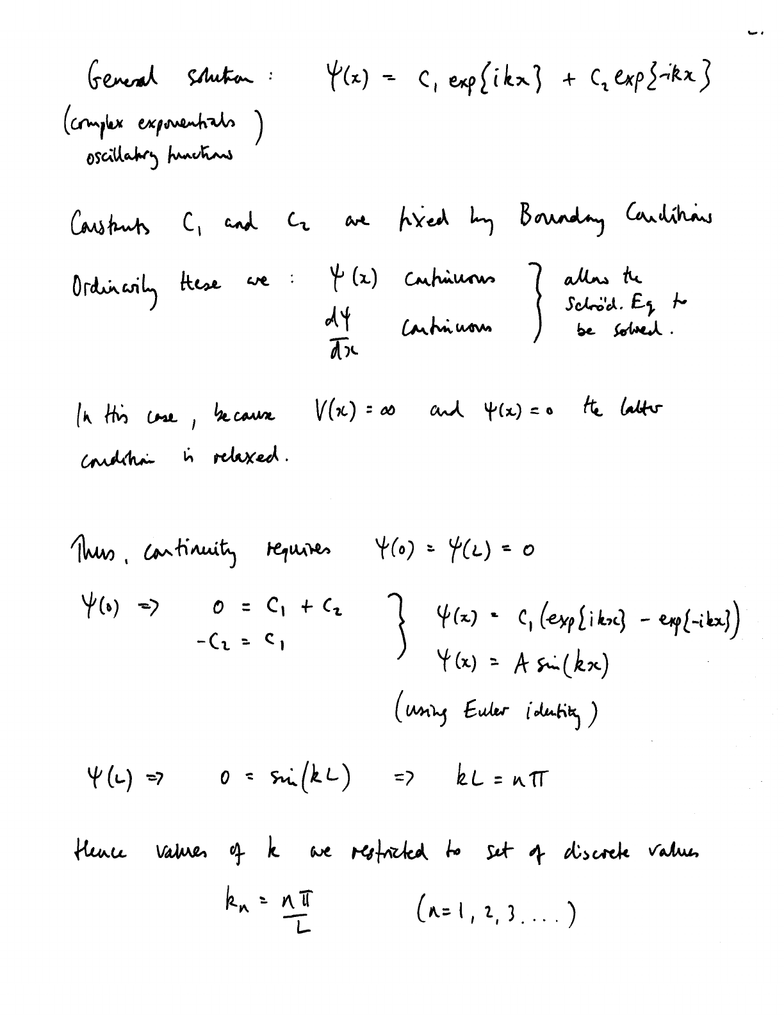 General solution : Ψ(x) = C₁ exp{ikx} + C₂ exp{-ikx}
(complex exponentials)
oscillatory functions
Constants C₁ and C₂ are fixed by Boundary Conditions
Ordinarily these are : Ψ(x) continuous } allows the
Schröd. Eq to
dΨ/dx continuous be solved.
In this case, because V(x) = ∞ and Ψ(x) = 0 the latter
condition is relaxed.
Thus, continuity requires Ψ(0) = Ψ(L) = 0
Ψ(0) => 0 = C₁ + C₂ } Ψ(x) = C₁ (exp{ikx} - exp{-ikx})
-C₂ = C₁ Ψ(x) = A sin(kx)
(using Euler identity)
Ψ(L) => 0 = sin(kL) => kL = nπ
Hence values of k are restricted to set of discrete values
kₙ = nπ/L (n=1, 2, 3 ....)